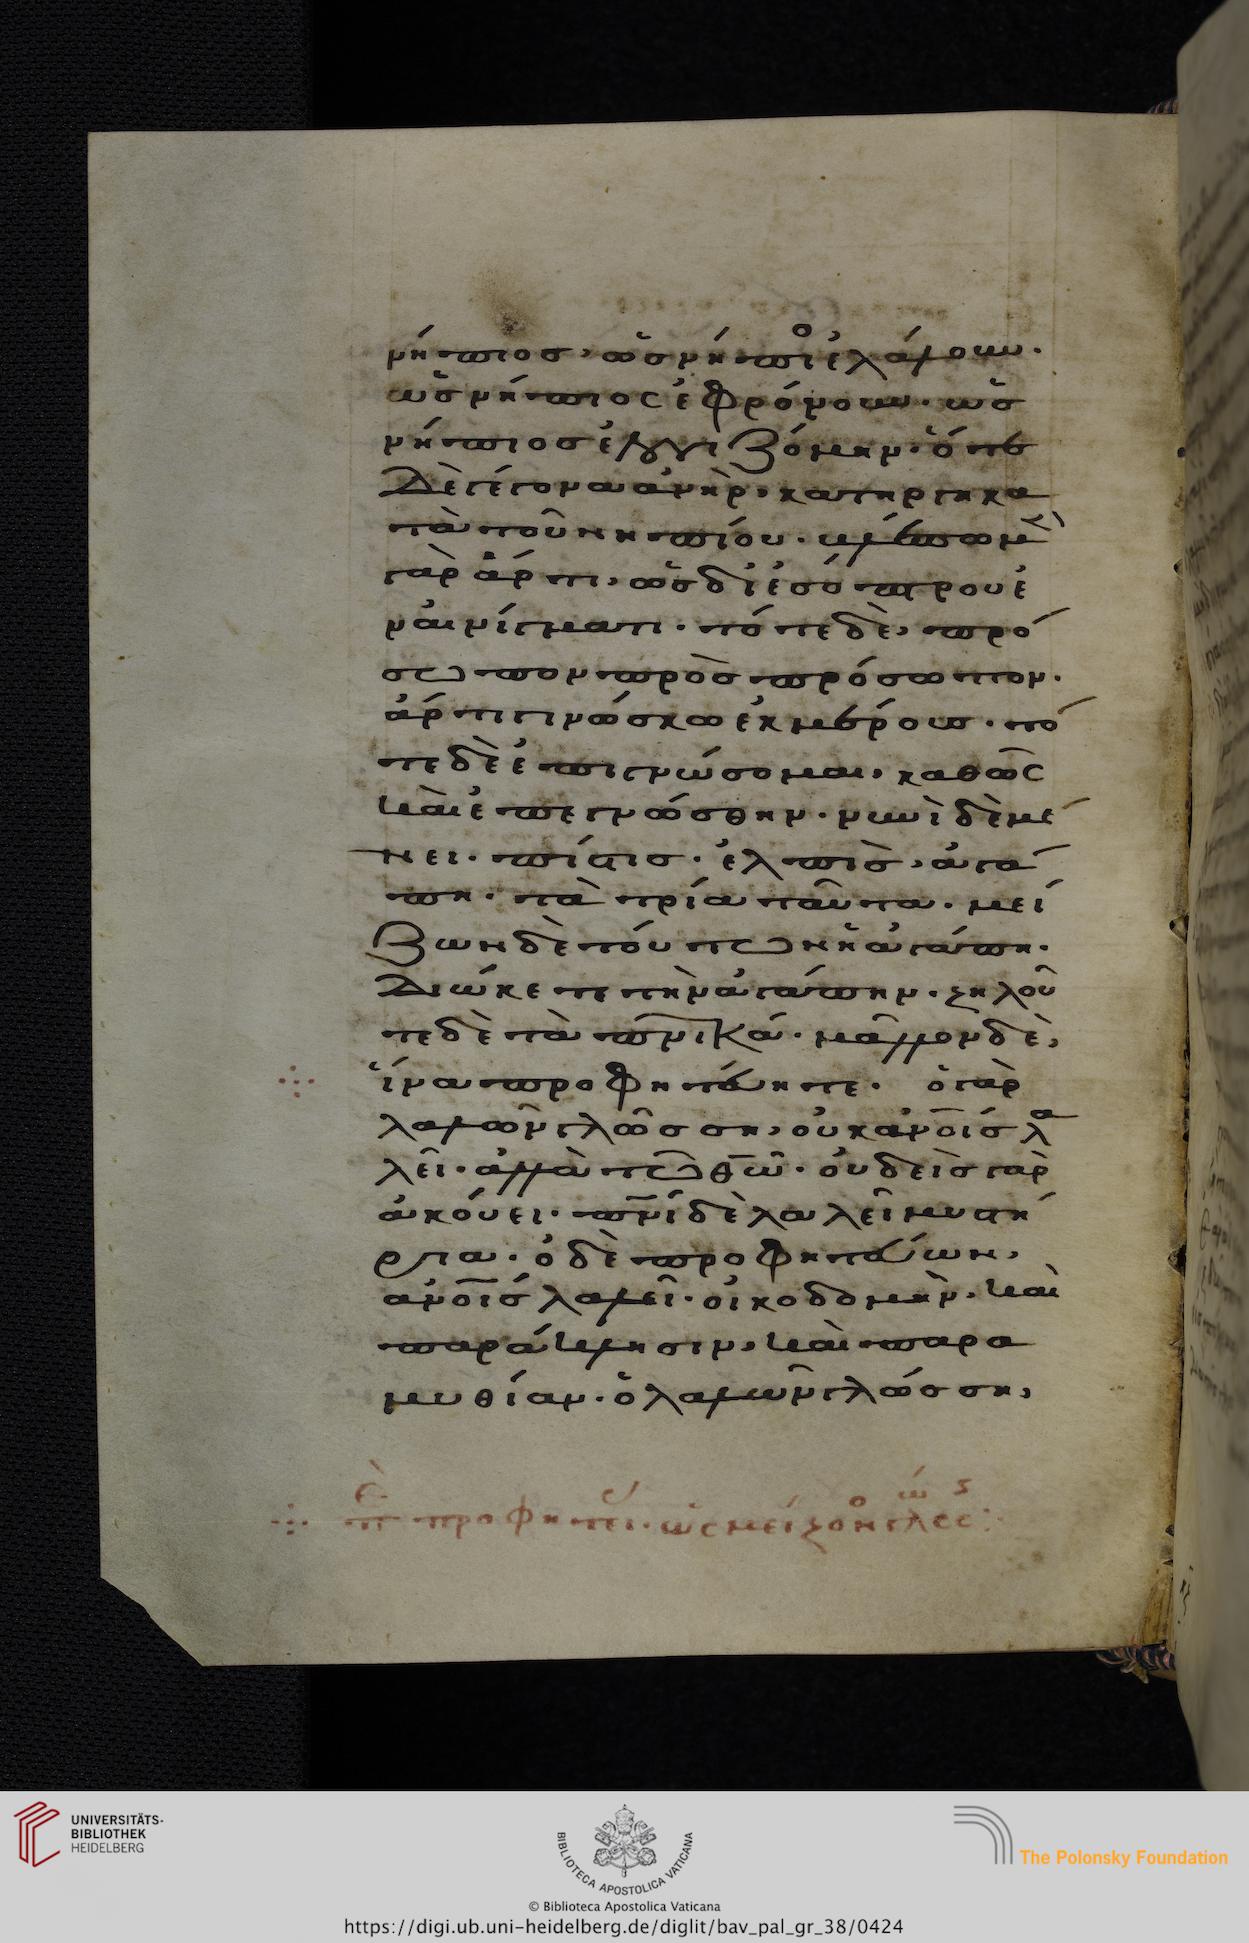 νήπιος, ὡς νήπι ἐλάλουν.
ὡς νήπιος ἐφρόνουν. ὡς
νήπιος ἐλογιζόμην. ὅτε
δὲ γέγονα ἀνὴρ, κατήργηκα
τὰ τοῦ νηπίου. βλέπομεν
γὰρ ἄρτι, ὡς δι' ἐσόπτρου ἐ
ν αἰνίγματι. τότε δὲ, πρό
σωπον πρὸς πρόσωπον.
ἄρτι γινώσκω ἐκ μέρους. τό
τε δὲ ἐπιγνώσομαι, καθὼς
καὶ ἐπεγνώσθην. νυνὶ δὲ μέ
νει. πίστις. ἐλπὶς, ἀγά
πη. τὰ τρία ταῦτα. μεί
ζων δὲ τούτων ἡ ἀγάπη.
Διώκετε τὴν ἀγάπην. ζηλοῦ
τε δὲ τὰ πνικά. μᾶλλον δὲ,
ἵνα προφητεύητε. ὁ γὰρ
λαλῶν γλώσση, οὐκ ἀνοις λα
λεῖ. ἀλλὰ τῶ θω. οὐδεὶς γὰρ
ἀκούει. πνι δὲ λαλεῖ μυστή
ρια. ὁ δὲ προφητεύων,
ἀνοις λαλεῖ. οἰκοδομὴν, καὶ
παράκλησιν, καὶ παρα
μυθίαν. ὁ λαλῶν γλώσση,
προφητεί. ὡς μείζον
UNIVERSITÄTS-
BIBLIOTHEK
HEIDELBERG
BIBLIOTECA APOSTOLICA VATICANA
The Polonsky Foundation
© Biblioteca Apostolica Vaticana
https://digi.ub.uni-heidelberg.de/diglit/bav_pal_gr_38/0424